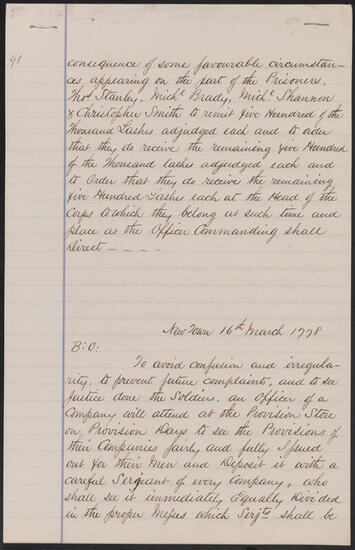 91
consequence of some favourable circumstan-
ces appearing on the part of the Prisoners.
Thos. Stanley, Michl. Brady, Michl. Shannon
& Christopher Smith to remit five Hundred of the
Thousand Lashes adjudged each and to order
that they do receive the remaining five Hundred
of the Thousand lashes adjudged each and
to Order that they do receive the remaining
five Hundred Lashes each at the Head of the
Corps to which they belong at such time and
place as the Officer Commanding shall
Direct - - - -
New Town 16th March 1778
B: O:
To avoid confusion and irregula-
rity, to prevent future complaints, and to see
justice done the Soldiers. an Officer of a
Company will attend at the Provision Store
on Provision Days to see the Provisions of
their Companies fairly and fully Issued
out for their Men and Deposit it with a
careful Sergeant of every Company, who
shall see it immediately Equally Divided
in the proper Messes which Serjts shall be